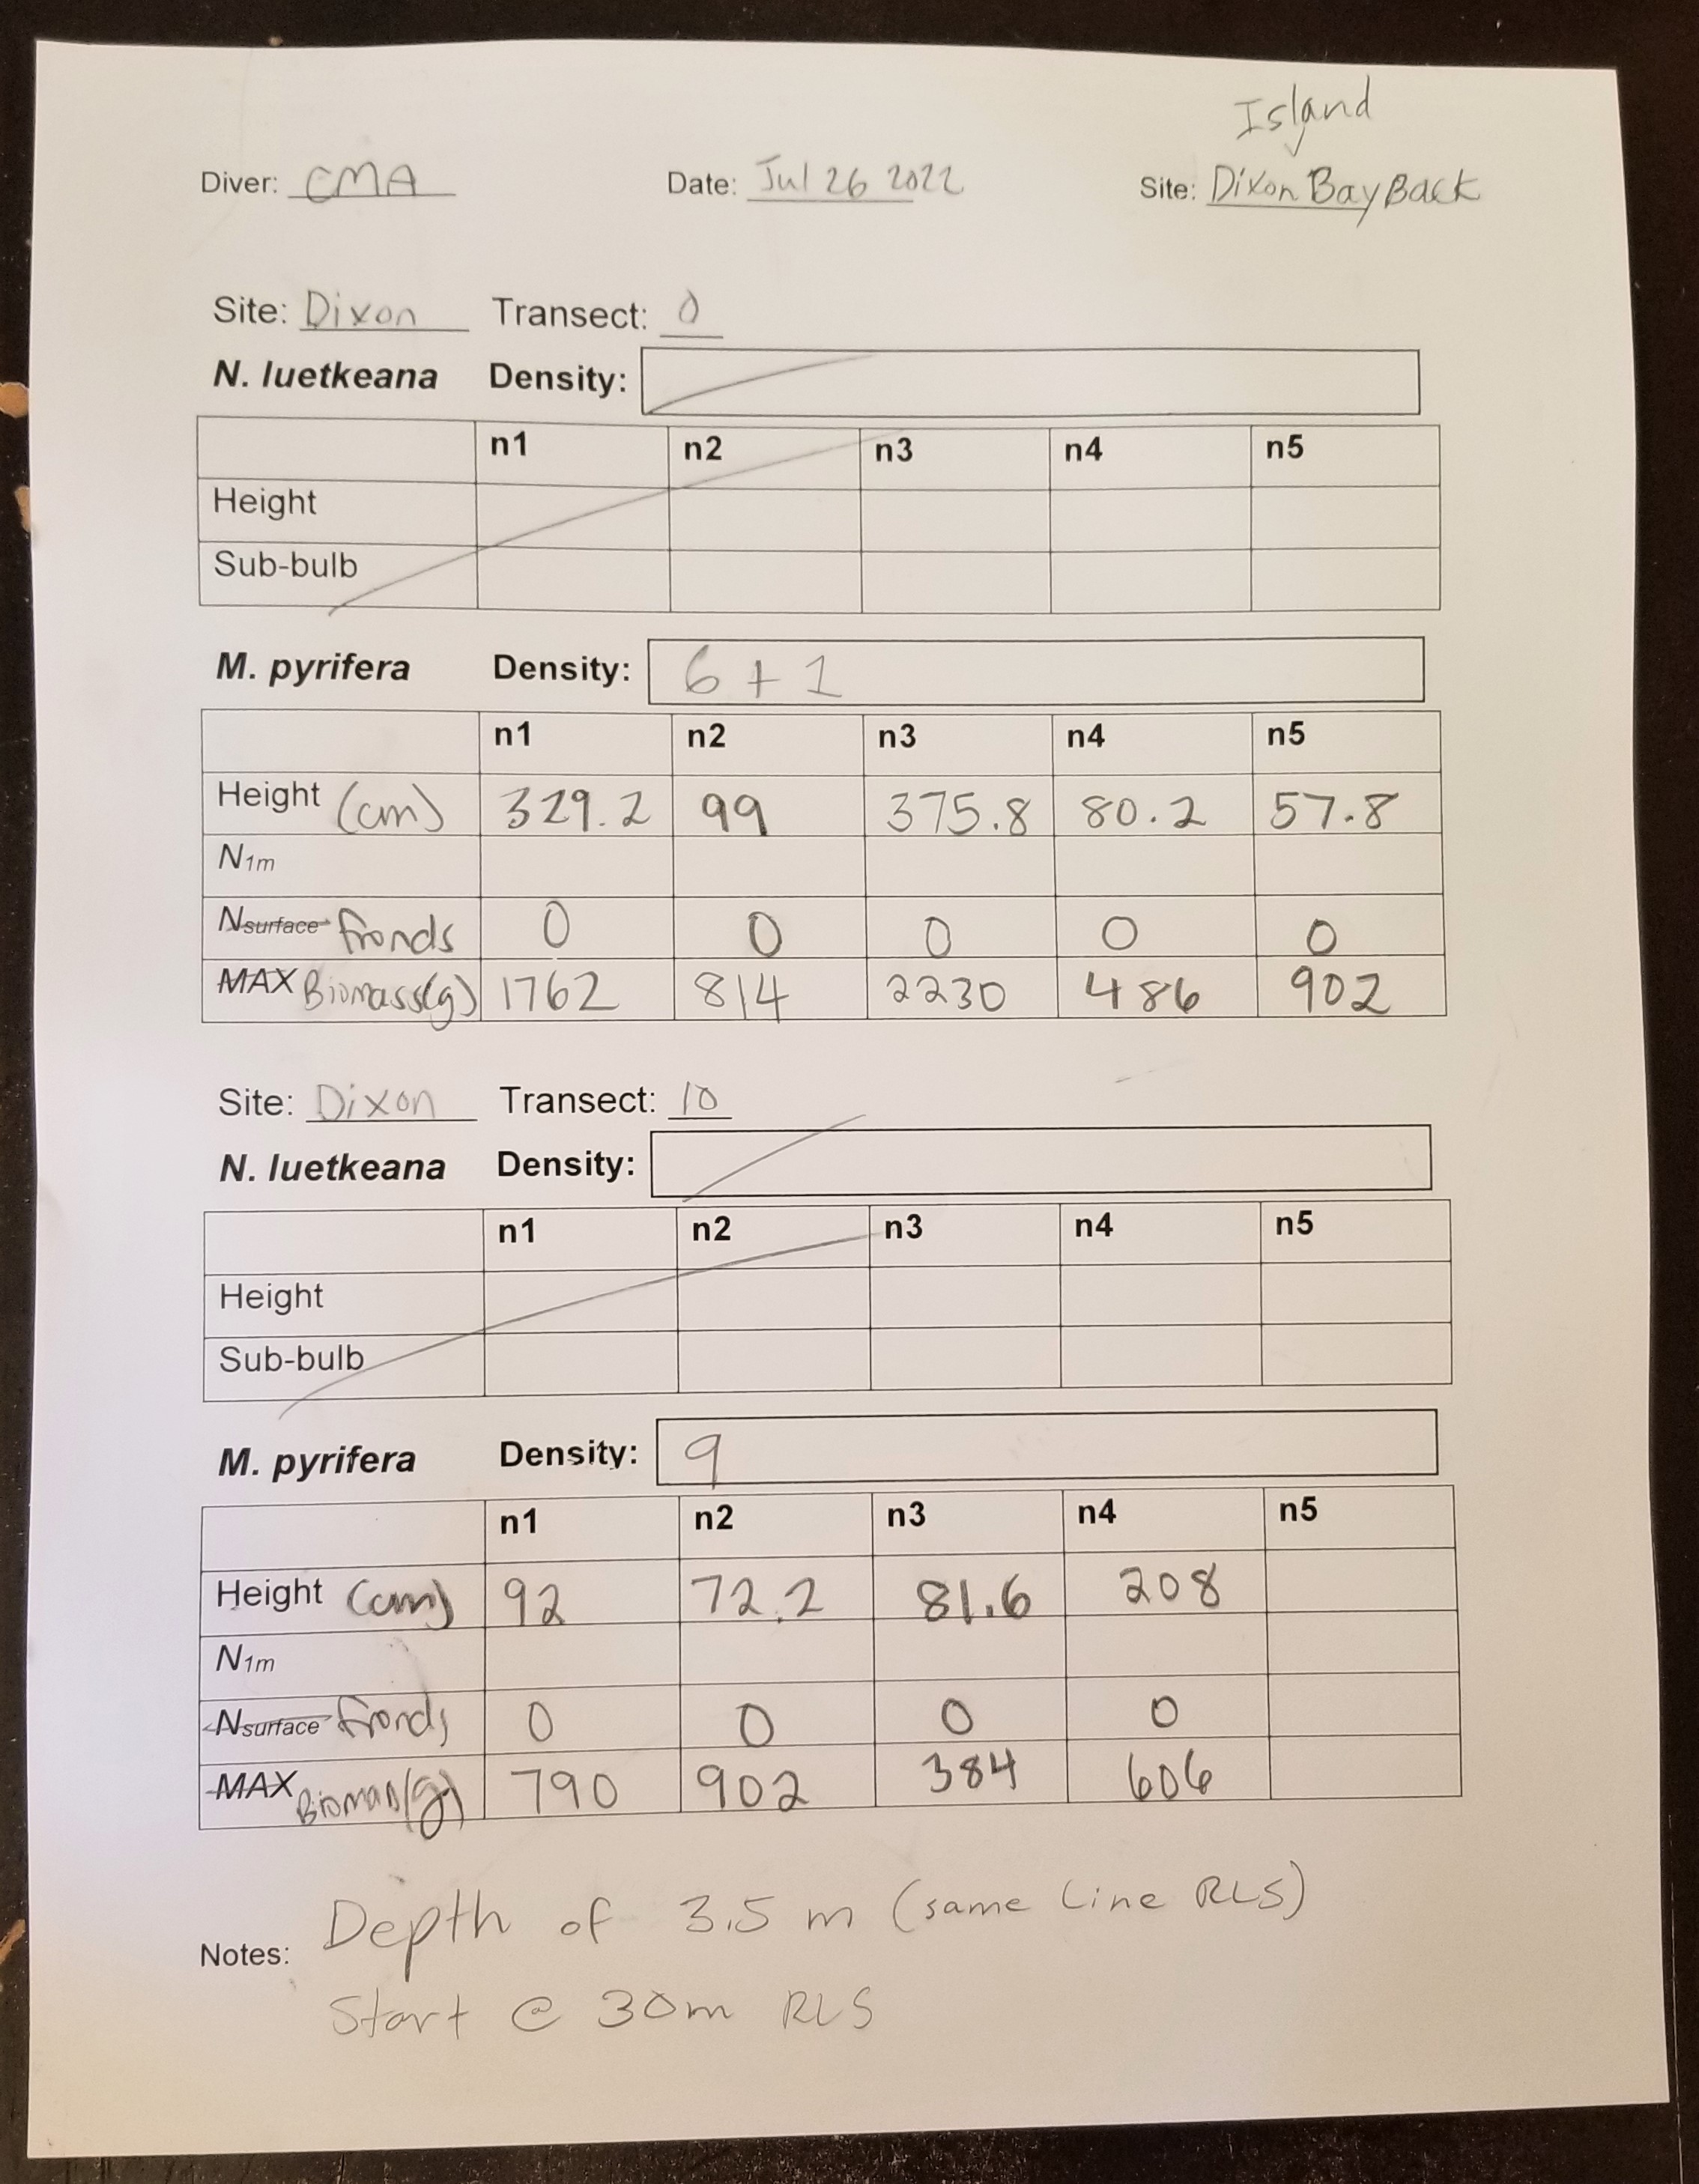 Island
Diver: CMA Date: Jul 26 2022 Site: Dixon Bay Back
Site: Dixon Transect: 0
N. luetkeana Density:
n1 n2 n3 n4 n5
Height
Sub-bulb
M. pyrifera Density: 6 + 1
n1 n2 n3 n4 n5
Height (cm) 329.2 99 375.8 80.2 57.8
N1m
Nsurface fronds 0 0 0 0 0
MAX Biomass(g) 1762 814 2230 486 902
Site: Dixon Transect: 10
N. luetkeana Density:
n1 n2 n3 n4 n5
Height
Sub-bulb
M. pyrifera Density: 9
n1 n2 n3 n4 n5
Height (cm) 92 72.2 81.6 208
N1m
Nsurface fronds 0 0 0 0
MAX Biomass(g) 790 902 384 606
Notes: Depth of 3.5 m (same line RLS)
Start @ 30m RLS